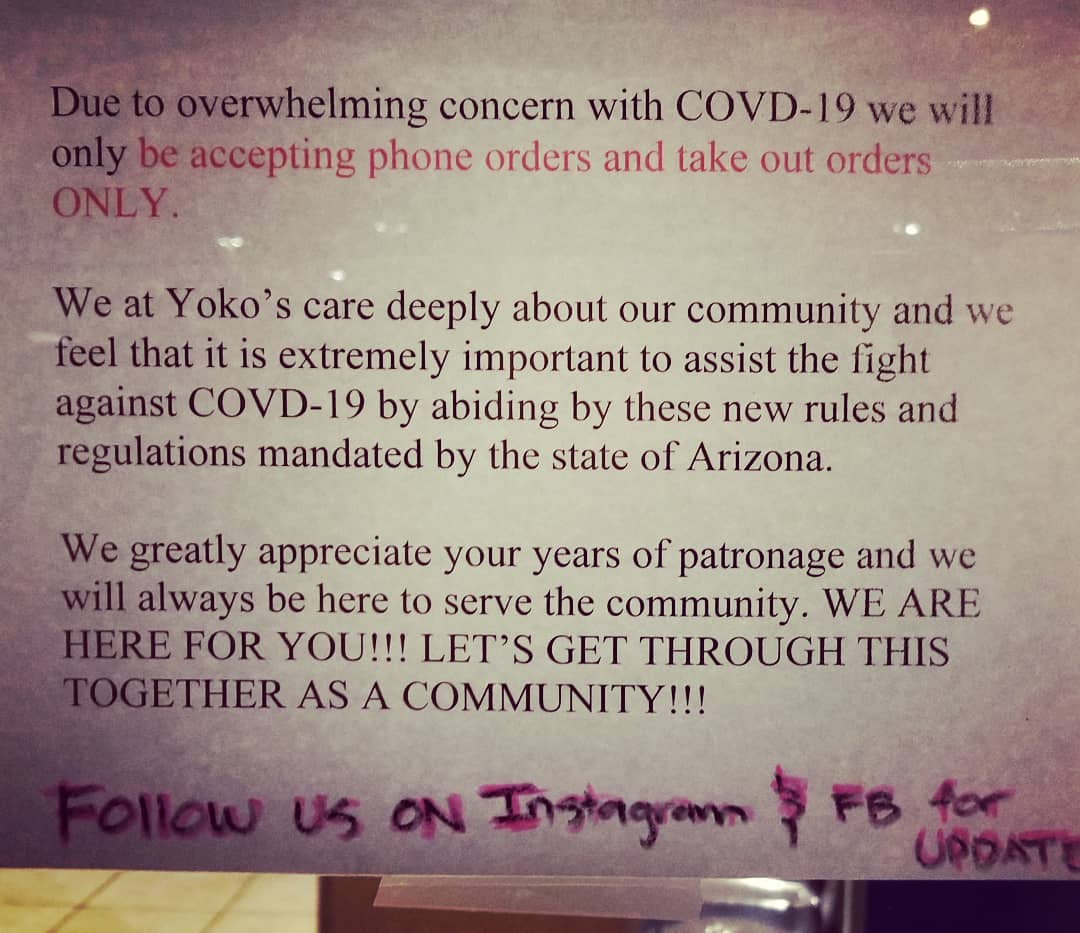 Due to overwhelming concern with COVD-19 we will
only be accepting phone orders and take out orders
ONLY.
We at Yoko’s care deeply about our community and we
feel that it is extremely important to assist the fight
against COVD-19 by abiding by these new rules and
regulations mandated by the state of Arizona.
We greatly appreciate your years of patronage and we
will always be here to serve the community. WE ARE
HERE FOR YOU!!! LET’S GET THROUGH THIS
TOGETHER AS A COMMUNITY!!!
Follow us on Instagram & FB for
UPDATE